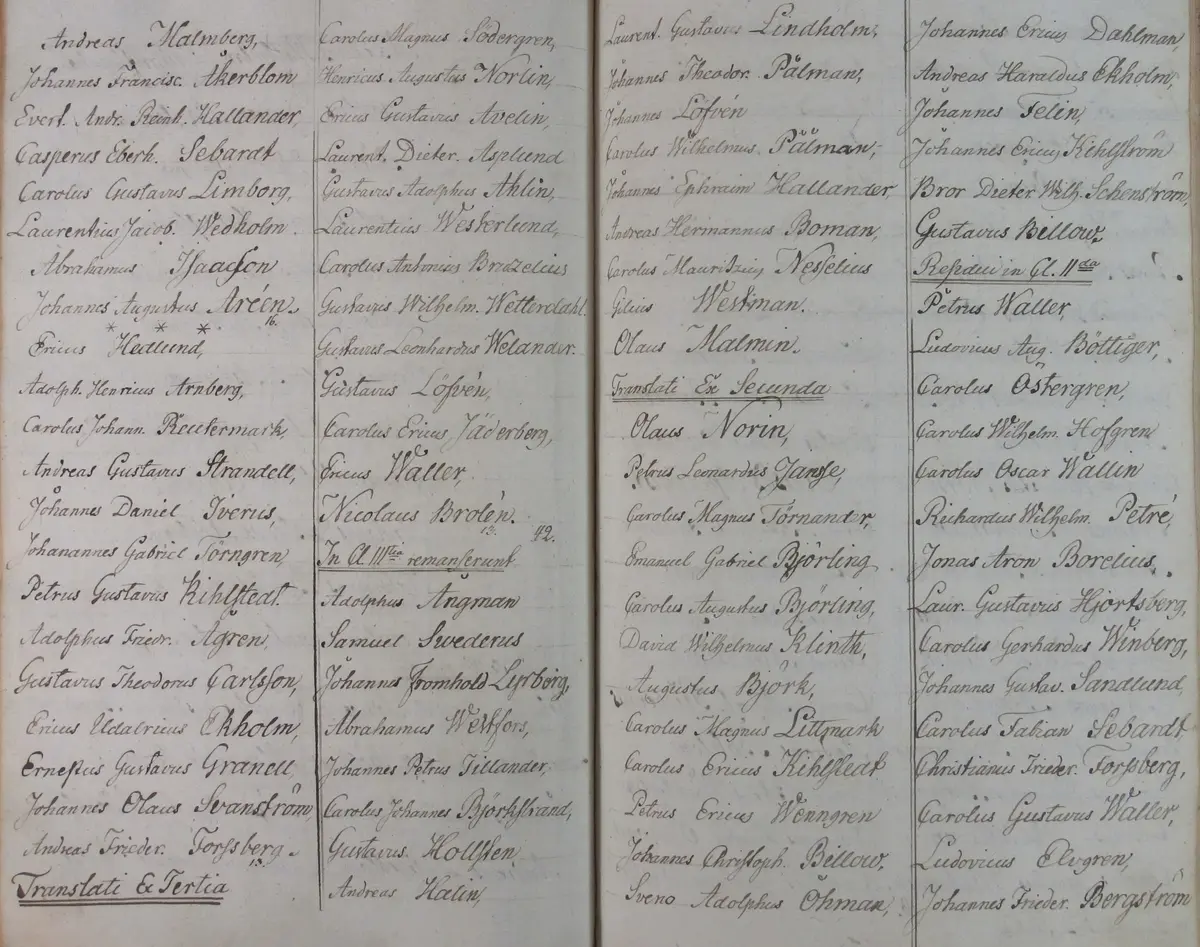 Andreas Malmberg,
Johannes Francisc. Åkerblom
Evert. Andr. Reinh. Hallander,
Casperus Eberh. Sebardt
Carolus Gustavus Limborg,
Laurentius Jacob. Wedholm.
Abrahamus Isaacson
Johannes Augustus Aréen.
16.
* * *
Ericus Hedlund,
Adolph. Henricus Arnberg,
Carolus Johann. Reutermark,
Andreas Gustavus Strandell,
Johannes Daniel Iverus,
Johanannes Gabriel Törngren,
Petrus Gustavus Kihlstedt.
Adolphus Friedr. Ågren,
Gustavus Theodorus Carlsson,
Ericus Udalricus Ekholm,
Ernestus Gustavus Granell,
Johannes Olaus Svanström,
Andreas Frieder. Forssberg.
13.
Translati E Tertia
Carolus Magnus Södergren,
Henricus Augustus Norlin,
Ericus Gustavus Avelin,
Laurent. Dieter. Asplund
Gustavus Adolphus Ahlin,
Laurentius Westerlund,
Carolus Antonius Bruzelius
Gustavus Wilhelm. Wetterdahl.
Gustavus Leonhardus Welander.
Gustavus Löfvén,
Carolus Ericus Jäderberg,
Ericus Waller,
Nicolaus Brolén.
13. 42.
In Cl. III:tia remanserunt
Adolphus Ångman
Samuel Swederus
Johannes Fromhold Lipborg,
Abrahamus Westfors,
Johannes Petrus Tillander,
Carolus Johannes Björkstrand,
Gustavus. Hollsten
Andreas Halin,
Laurent. Gustavus Lindholm,
Johannes Theodor. Pålman,
Johannes Löfvén
Carolus Wilhelmus Pålman,
Johannes Ephraim Hallander,
Andreas Hermannus Boman,
Carolus Mauritzius Nesselius
Gilius Westman.
Olaus Malmin.
Translati Ex Secunda
Olaus Norin,
Petrus Leonardus Janse,
Carolus Magnus Törnander,
Emanuel Gabriel Björling
Carolus Augustus Björling,
David Wilhelmus Klinth,
Augustus Björk,
Carolus Magnus Littmark
Carolus Ericus Kihlstedt
Petrus Ericus Wenngren
Johannes Christoph. Billow,
Sveno Adolphus Öhman,
Johannes Ericus Dahlman,
Andreas Haraldus Ekholm,
Johannes Felin,
Johannes Ericus Kihlström
Bror Dieter Wilh. Schenström,
Gustavus Billow.
Residui in Cl. II:da
Petrus Waller,
Ludovicus Aug. Böttiger,
Carolus Östergren,
Carolus Wilhelm. Hofgren
Carolus Oscar Wallin
Richardus Wilhelm. Petré,
Jonas Aron Borelius,
Laur. Gustavus Hjortsberg,
Carolus Gerhardus Winberg,
Johannes Gustav. Sandlund,
Carolus Fabian Sebardt
Christianus Frieder. Forssberg,
Carolus Gustavus Waller,
Ludovicus Elvgren,
Johannes Frieder. Bergström